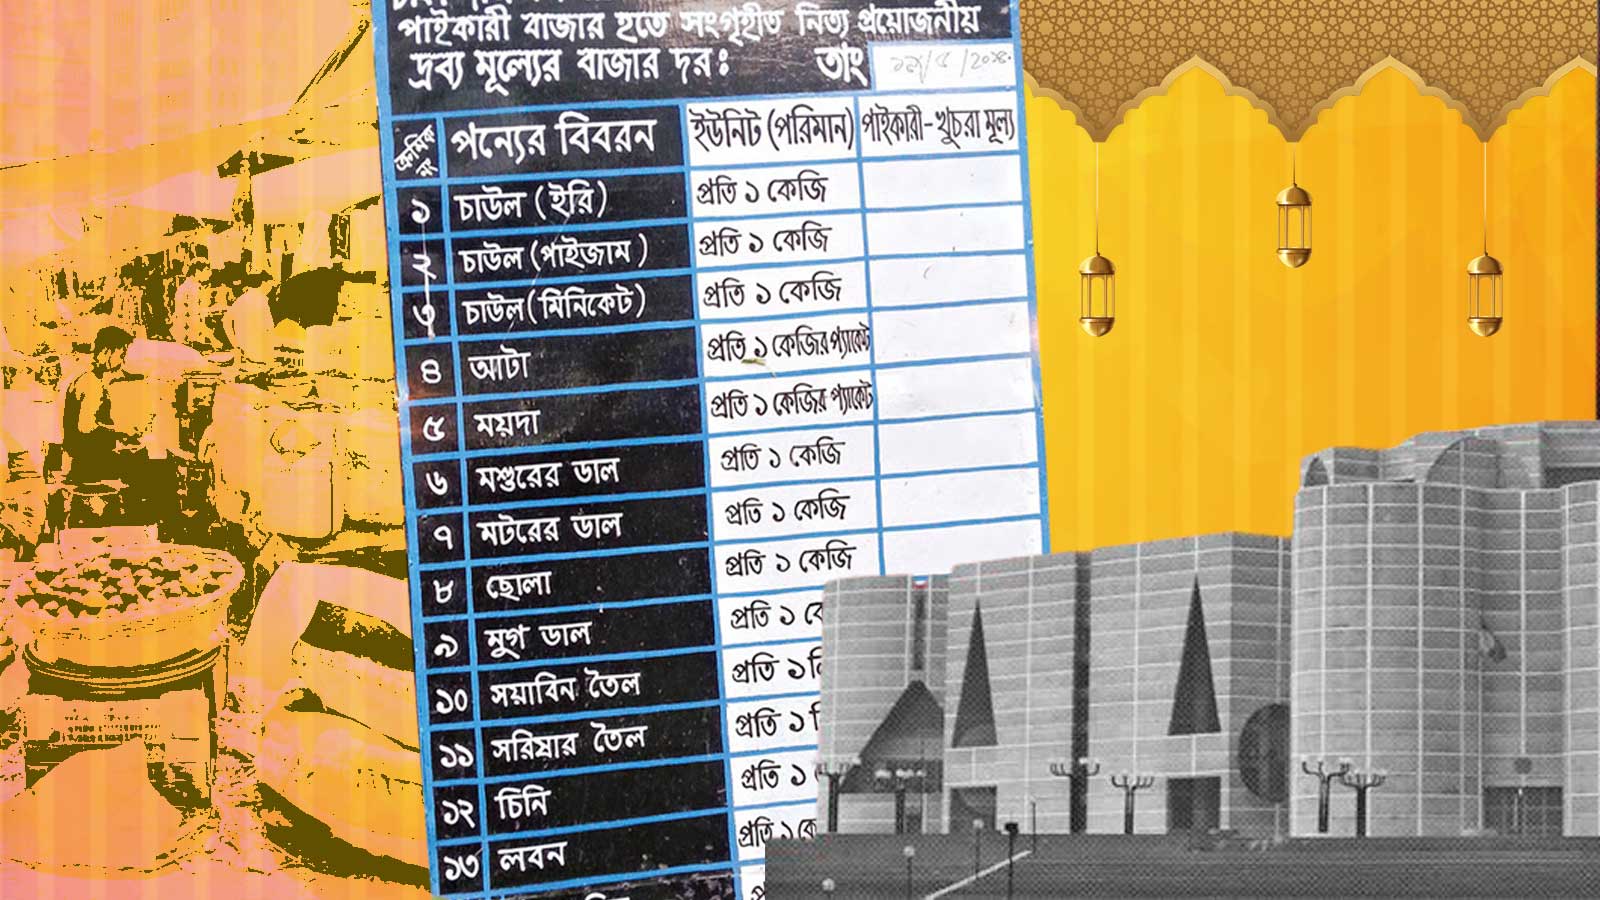 পাইকারী বাজার হতে সংগৃহীত নিত্য প্রয়োজনীয়
দ্রব্য মূল্যের বাজার দর: তাং
ক্রমিক নং পন্যের বিবরন ইউনিট (পরিমান) পাইকারী-খুচরা মূল্য
১ চাউল (ইরি) প্রতি ১ কেজি
২ চাউল (পাইজাম) প্রতি ১ কেজি
৩ চাউল (মিনিকেট) প্রতি ১ কেজি
৪ আটা প্রতি ১ কেজির প্যাকেট
৫ ময়দা প্রতি ১ কেজির প্যাকেট
৬ মশুরের ডাল প্রতি ১ কেজি
৭ মটরের ডাল প্রতি ১ কেজি
৮ ছোলা প্রতি ১ কেজি
৯ মুগ ডাল প্রতি ১
১০ সয়াবিন তৈল প্রতি ১
১১ সরিষার তৈল প্রতি ১
১২ চিনি প্রতি ১
১৩ লবন প্রতি ১